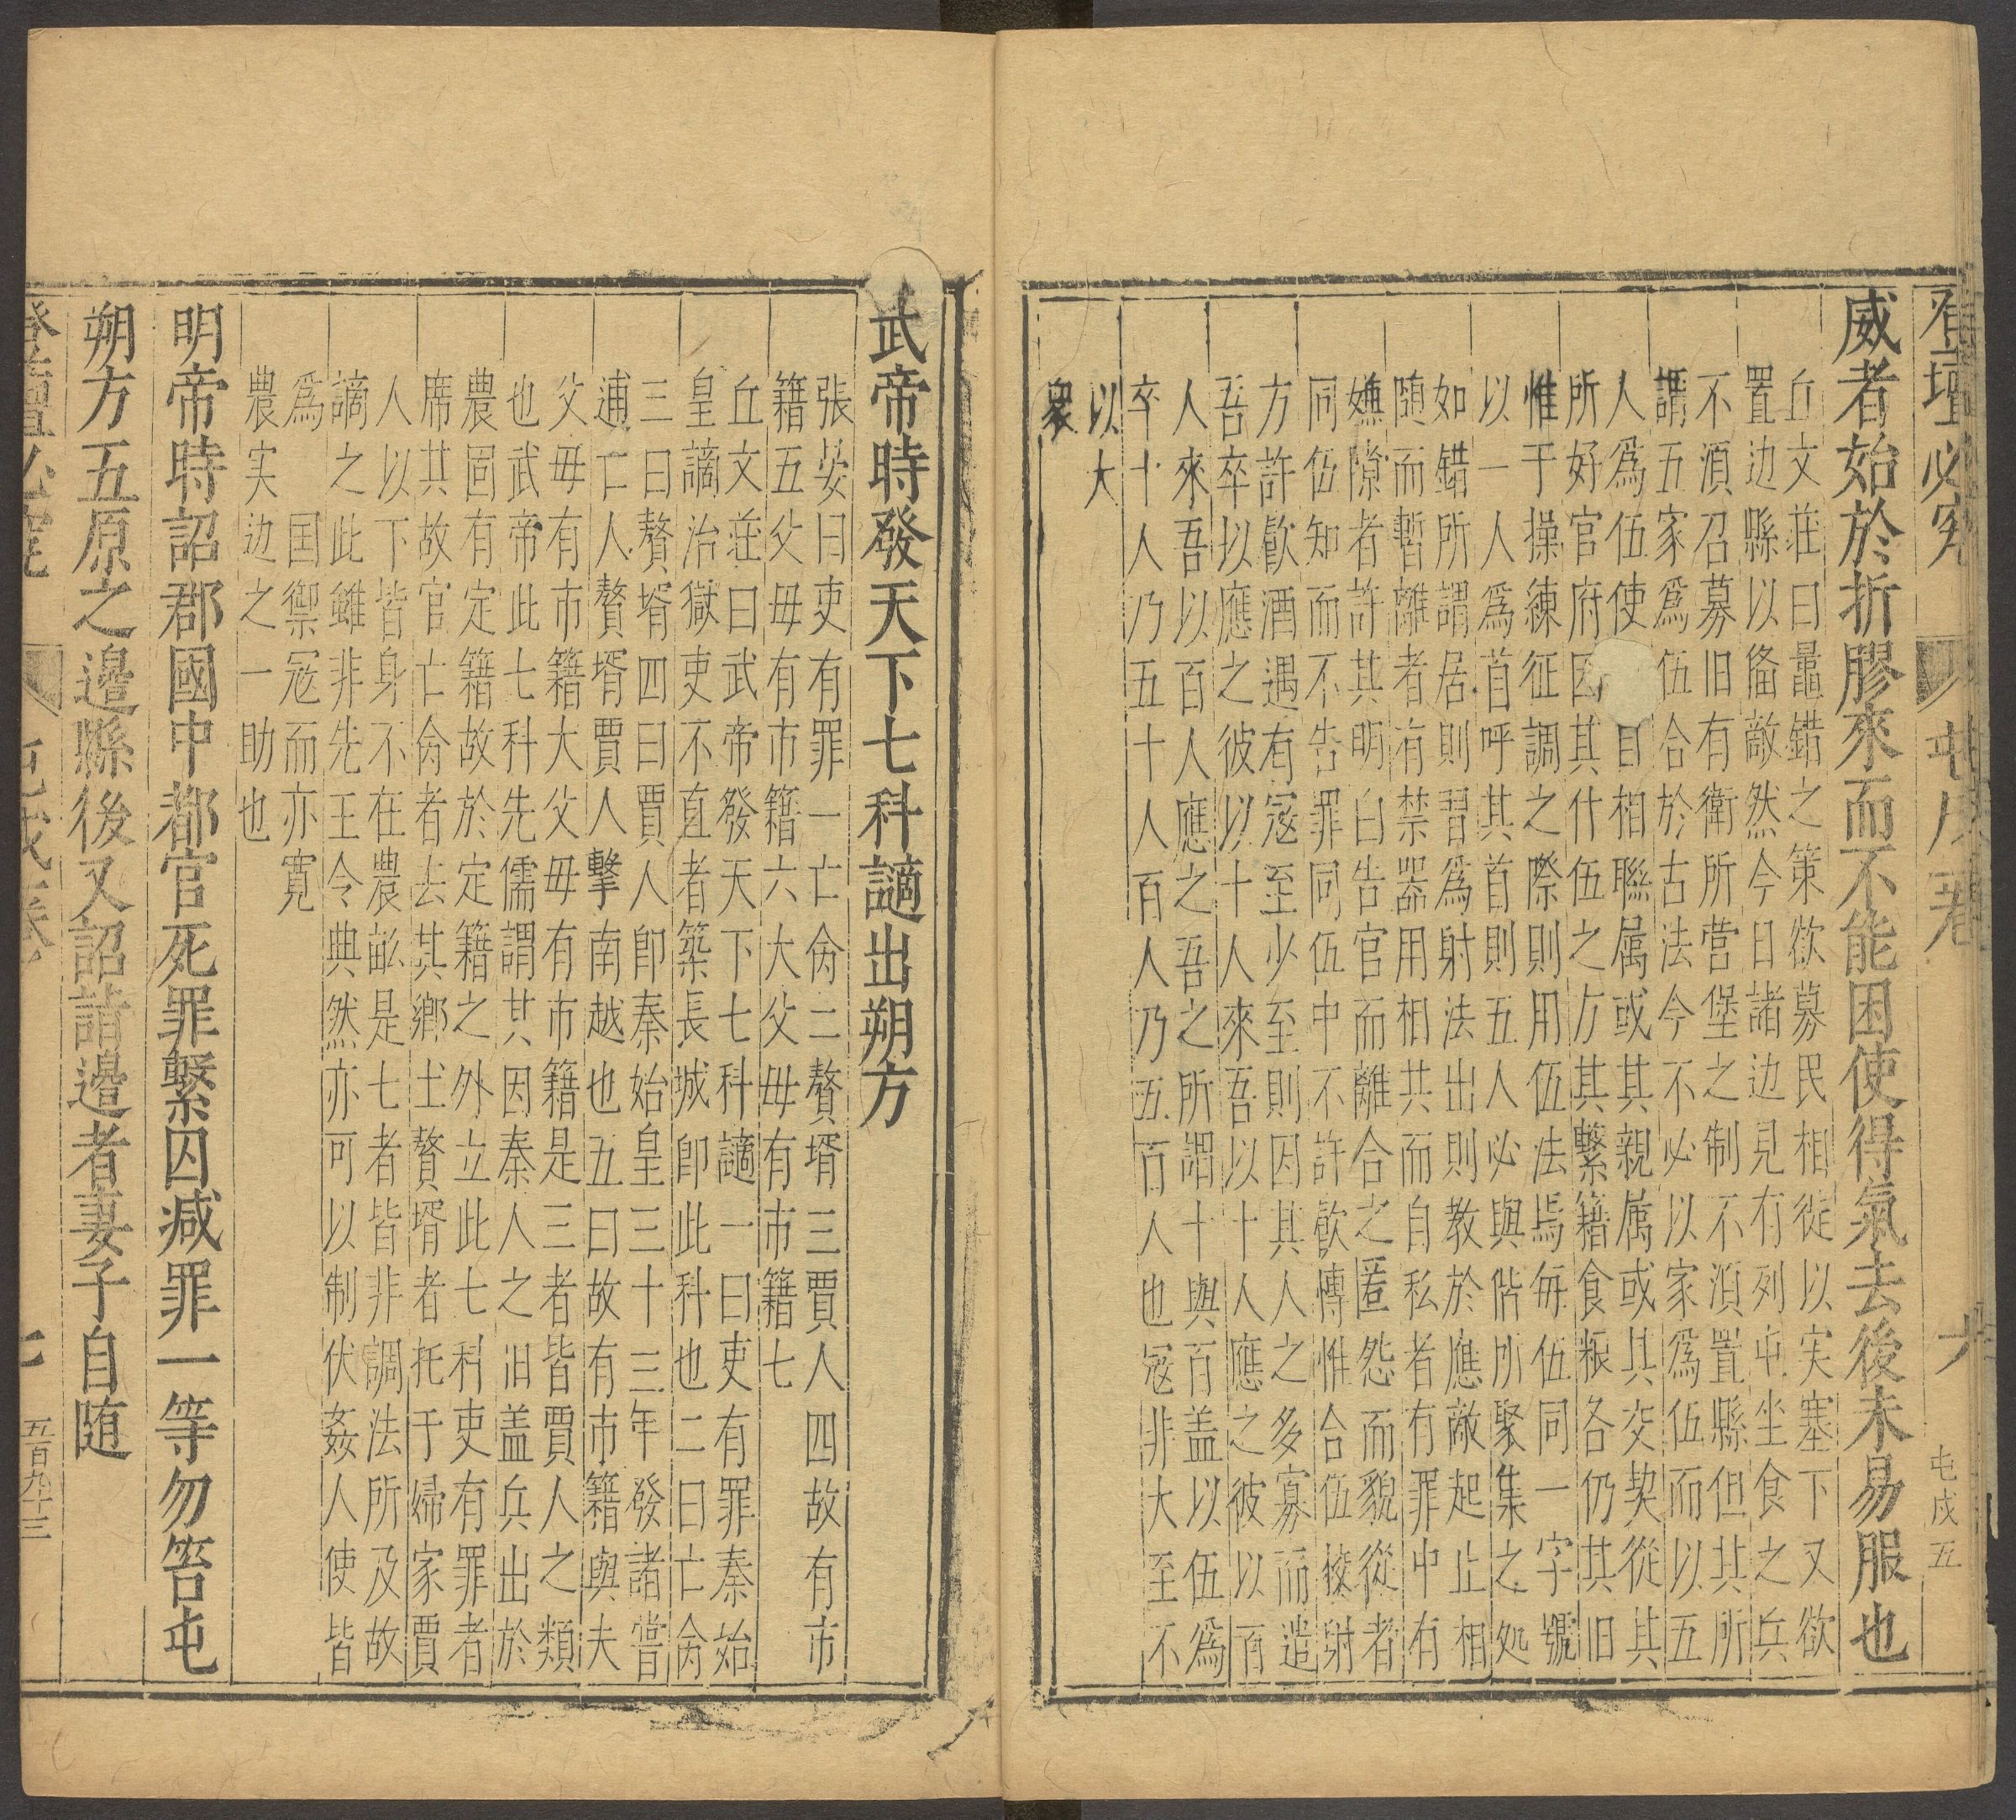 登壇必究 屯戍卷 六 屯戍五
威者始於折膠來而不能困使得氣去後未易服也
丘文莊曰鼂錯之策欲募民相從以実塞下又欲
置边縣以俻敵然今日諸边見有列屯坐食之兵
不湏召募旧有衛所营堡之制不湏置縣但其所
謂五家為伍合於古法今不必以家爲伍而以五
人爲伍使自相聯属或其親属或其交契從其
所好官府因其什伍之方其繫籍食粮各仍其旧
惟于操練征調之際則用伍法焉每伍同一字號
以一人爲首呼其首則五人必與偕所聚集之処
如錯所謂居則習爲射法出則教於應敵起止相
随而暫離者有禁器用相共而自私者有罪中有
嫌隙者許其明白告官而離合之匿怨而貌從者
同伍知而不告罪同伍中不許飲博惟合伍校射
方許飲酒遇有寇至少至則因其人之多寡而遣
吾卒以應之彼以十人來吾以十人應之彼以百
人來吾以百人應之吾之所謂十與百盖以伍爲
卒十人乃五十人百人乃五百人也寇非大至不
以大
衆
武帝時發天下七科讁出朔方
張晏曰吏有罪一亡命二贅壻三賈人四故有市
籍五父毋有市籍六大父毋有市籍七
丘文莊曰武帝發天下七科讁一曰吏有罪秦始
皇謫治獄吏不直者築長城即此科也二曰亡命
三曰贅壻四曰賈人即秦始皇三十三年發諸嘗
逋亡人贅壻賈人擊南越也五曰故有市籍與夫
父毋有市籍大父毋有市籍是三者皆賈人之類
也武帝此七科先儒謂其因秦人之旧盖兵出於
農固有定籍故於定籍之外立此七科吏有罪者
席其故官亡命者去其鄉土贅壻者托于婦家賈
人以下皆身不在農畝是七者皆非調法所及故
謫之此雖非先王令典然亦可以制伏姦人使皆
爲 国禦寇而亦寛
農実边之一助也
明帝時詔郡國中都官死罪繫囚减罪一等勿笞屯
朔方五原之邊縣後又詔諸邊者妻子自随
登壇必究 屯戍卷 七 五百九十三